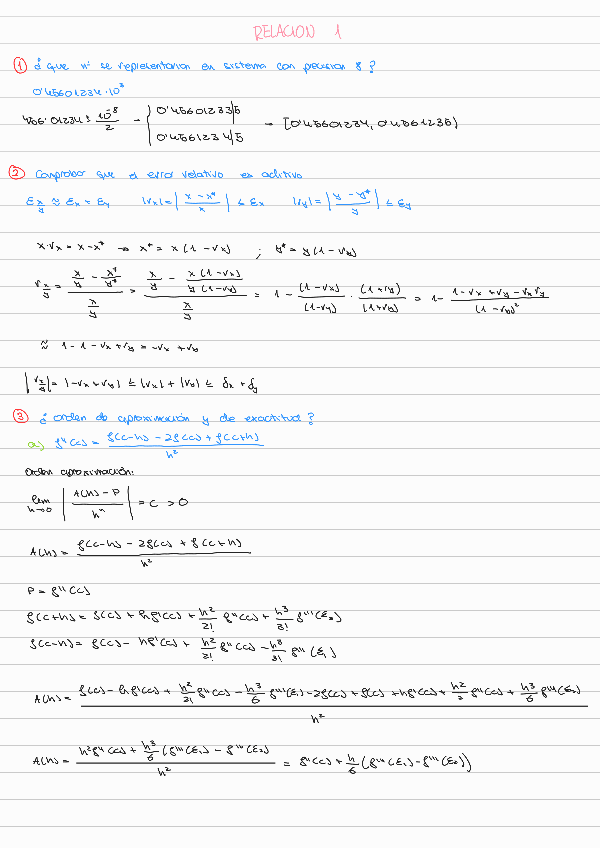 RELACION 1
① ¿ que nº se representarian en sistema con precision 8 ?
0'45601234·10³
456'01234 ± 10⁻⁸/2 → { 0'45601233|5
0'4561234|5 → [0'45601234, 0'4561235)
② Comprobar que el error relativo es aditivo
ε x/y ≈ εx + εy |rx| = | (x - x*)/x | ≤ εx |ry| = | (y - y*)/y | ≤ εy
x·rx = x - x* → x* = x (1 - rx) ; y* = y (1 - ry)
r x/y = (x/y - x*/y*)/(x/y) = (x/y - x(1-rx)/y(1-ry))/(x/y) = 1 - (1-rx)/(1-ry) · (1+ry)/(1+ry) = 1 - (1 - rx + ry - rx ry)/(1 - ry)²
≈ 1 - 1 - rx + ry = -rx + ry
| r x/y | = |-rx + ry| ≤ |rx| + |ry| ≤ δx + δy
③ ¿ orden de aproximación y de exactitud ?
a) f''(c) = (f(c-h) - 2f(c) + f(c+h))/h²
Orden aproximación:
lim h→0 | (A(h) - P)/hⁿ | = C > 0
A(h) = (f(c-h) - 2f(c) + f(c+h))/h²
P = f''(c)
f(c+h) = f(c) + hf'(c) + h²/2! f''(c) + h³/3! f'''(ξ₂)
f(c-h) = f(c) - hf'(c) + h²/2! f''(c) - h³/3! f'''(ξ₁)
A(h) = (f(c) - hf'(c) + h²/2! f''(c) - h³/6 f'''(ξ₁) - 2f(c) + f(c) + hf'(c) + h²/2 f''(c) + h³/6 f'''(ξ₂))/h²
A(h) = (h²f''(c) + h³/6 (f'''(ξ₁) - f'''(ξ₂)))/h² = f''(c) + h/6 (f'''(ξ₁) - f'''(ξ₂))